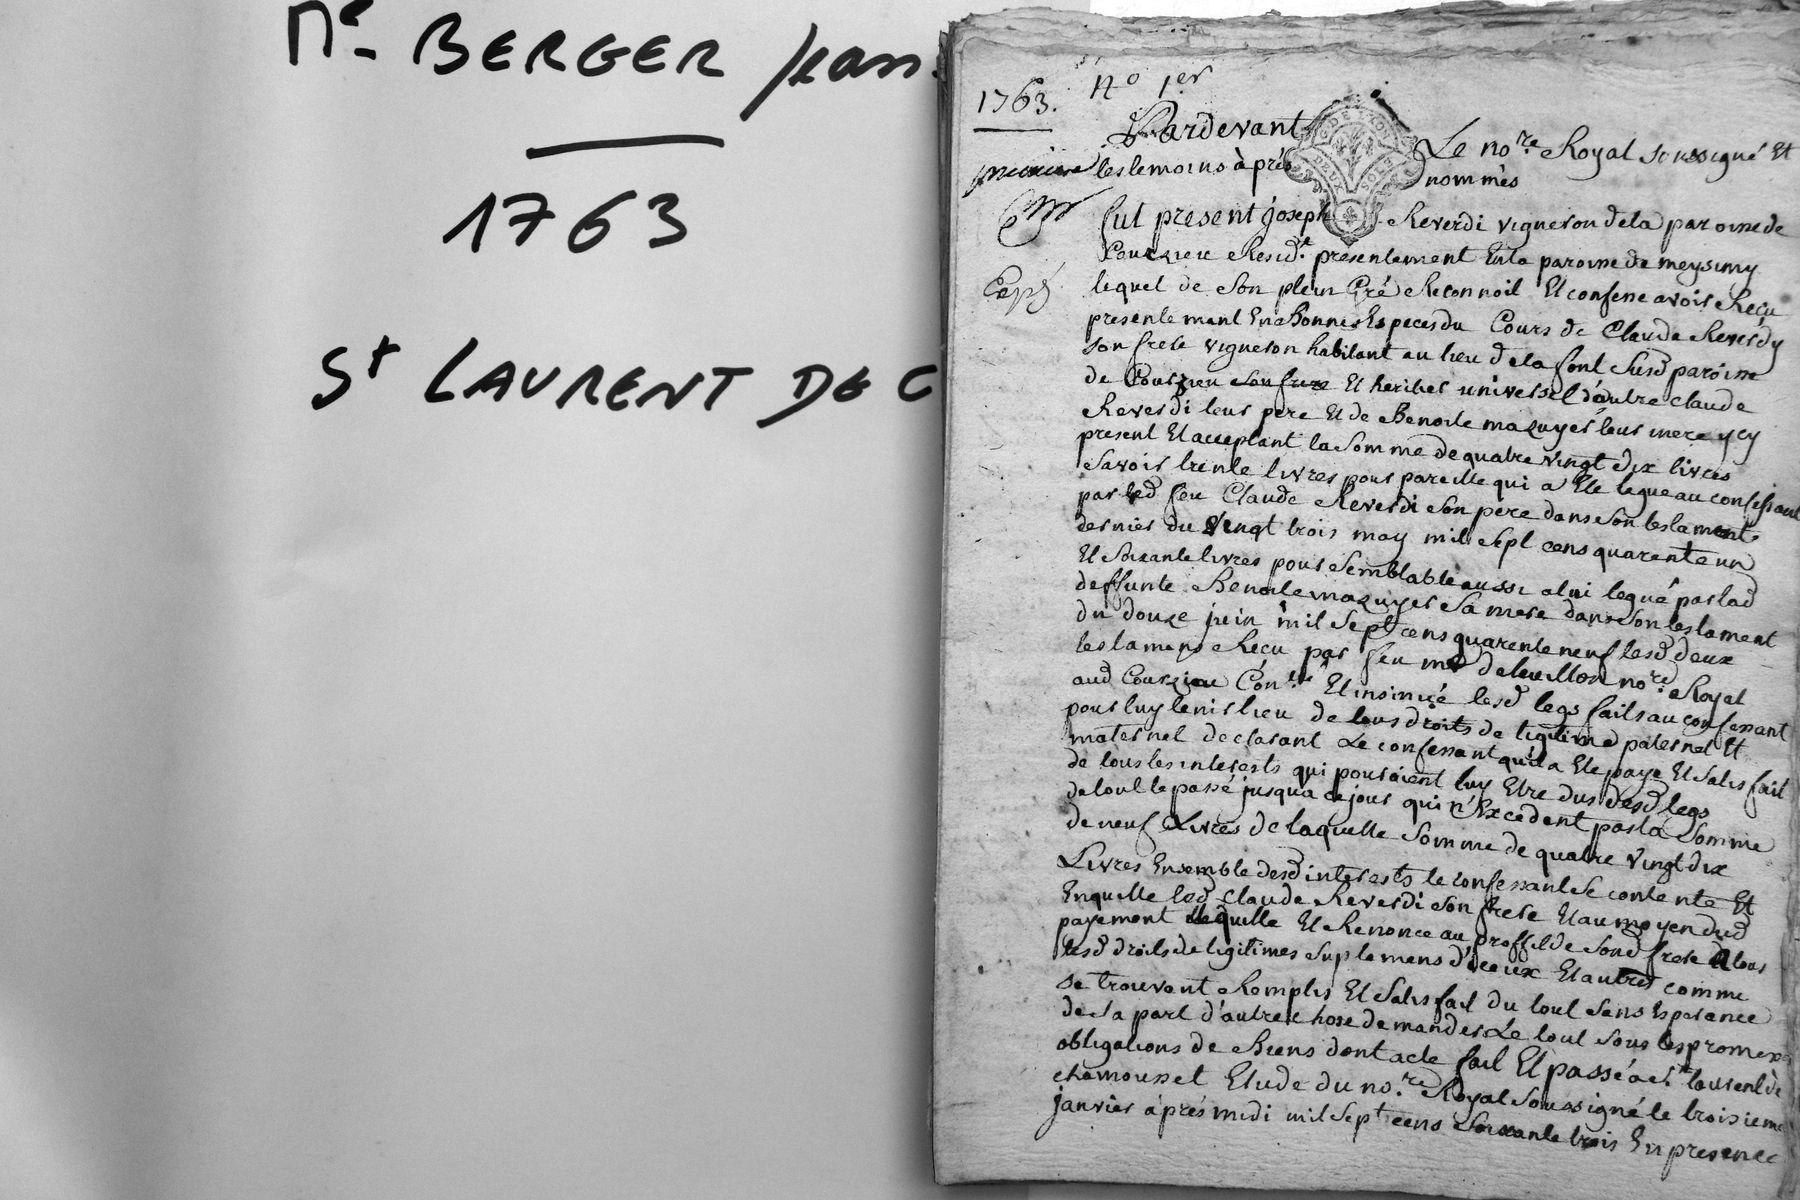 Me BERGER Jean
1763
St LAURENT DE C
1763.
No 1er
Pardevant Le nore Royal soussigné Et
les temoins à près nommés
G DE LYON
DEUX SOLS
fut present joseph Reverdi vigneron dela paroisse de
Courzieu Residt presentement En la paroisse de meysimy
lequel de Son plein Gré Reconnoit Et confesse avoir Reçu
presentement En Bonnes Especes du Cours de Claude Reverdy
son frere vigneron habitant au lieu dela font Susd paroisse
de Courzieu son frere Et heritier universel d'autre claude
Reverdi leur pere Et de Benoite mazuyer leur mere ycy
present Et acceptant la Somme de quatre vingt dix livres
Savoir trente livres pour pareille qui a Eté legué au confessant
par led feu Claude Reverdi Son pere dans Son testament
dernier du Vingt trois may mil Sept cens quarente un
Et Soixante livres pour Semblable aussi a lui legué par lad
deffunte Benoite mazuyer Sa mere dans Son testament
du douze juin mil Sept cens quarente neuf lesd deux
testamens Reçu par feu me delavillon nore Royal
aud Courzieu Con.lé Et insinué lesd legs faits au confessant
pour luy tenir lieu de tous droits de legitime paternel Et
maternel declarant Le confessant qu'il a Eté payé Et Satisfait
de tous les interests qui pouraient luy Etre dus desd legs
de tout le passé jusqua ce jour qui n'Excedent pas la Somme
de neuf Livres de laquelle Somme de quatre Vingt dix
Livres Ensemble desd interests le confessant Se contente Et
Enquitte led Claude Reverdi Son frere Et au moyen dud
payement Il quitte Et Renonce au proffit de Sond frere a tous
lesd droits de legitimes Suplemens d'iceux Et autres comme
Se trouvant Remplis Et Satisfait du tout Sans Esperance
de Sa part d'autre chose demander Le tout Sous les promesses
obligations de Biens dont acte fait Et passé a St laurent de
chamousset Etude du nore Royal Soussigné le troisieme
janvier après midi mil Sept cens Soixante trois En presence